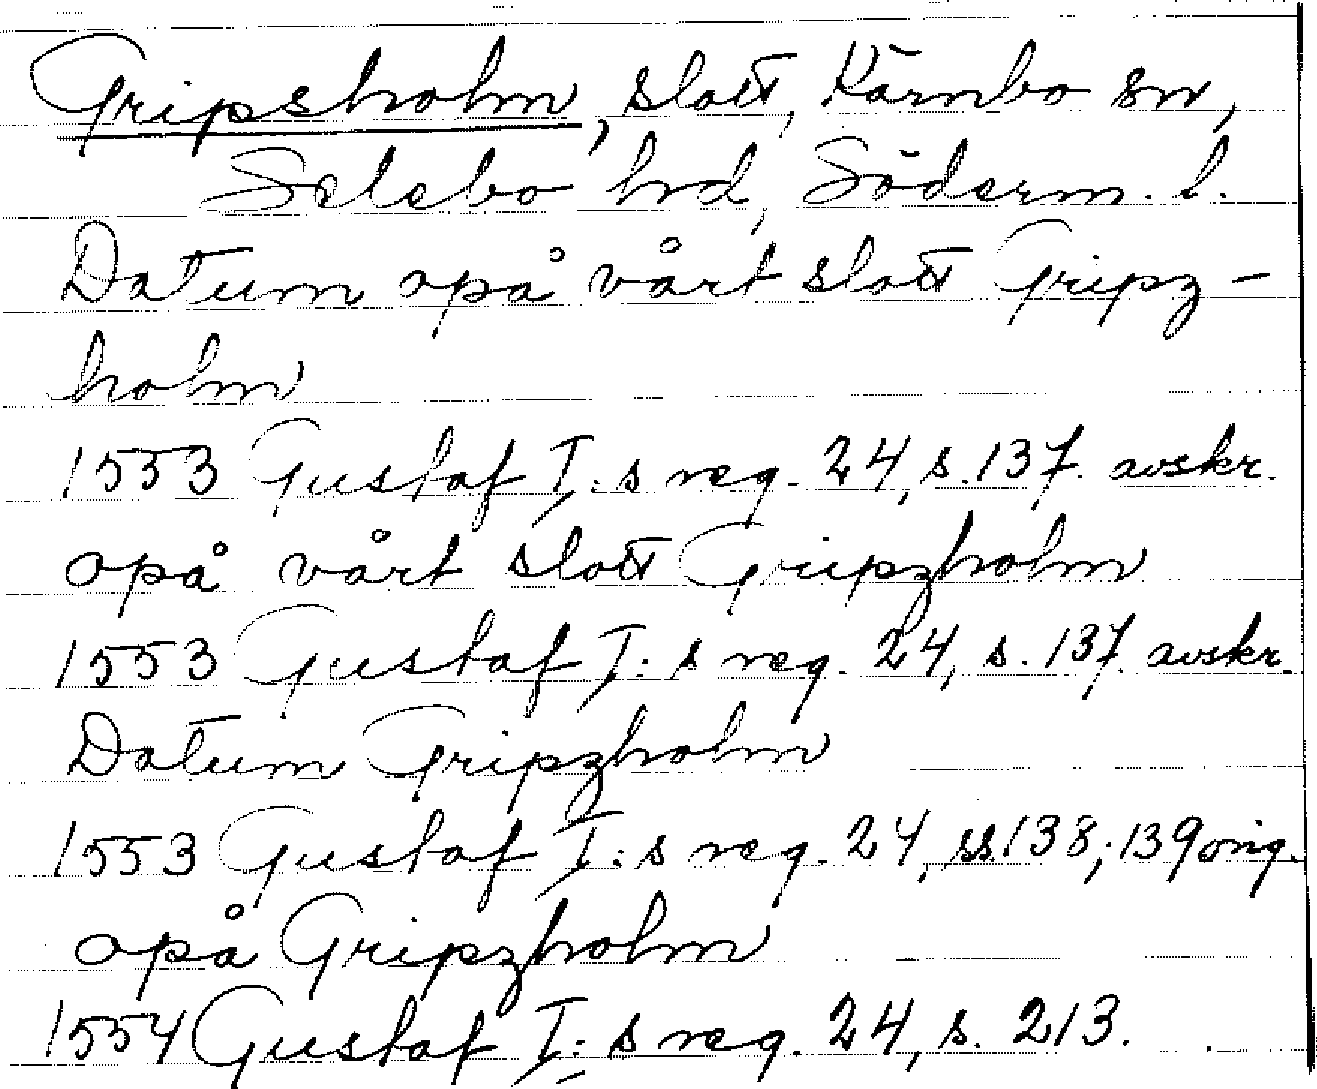 Gripsholm, slott, Kärnbo sn,
Selebo hd, Söderm. l.
Datum opå vårt slott Gripz-
holm
1553 Gustaf I:s reg. 24, s. 137. avskr.
opå vårt slott Gripzholm
1553 Gustaf I:s reg. 24, s. 137. avskr.
Datum Gripzholm
1553 Gustaf I:s reg. 24, ss. 138; 139 orig.
opå Gripzholm
1554 Gustaf I:s reg. 24, s. 213.